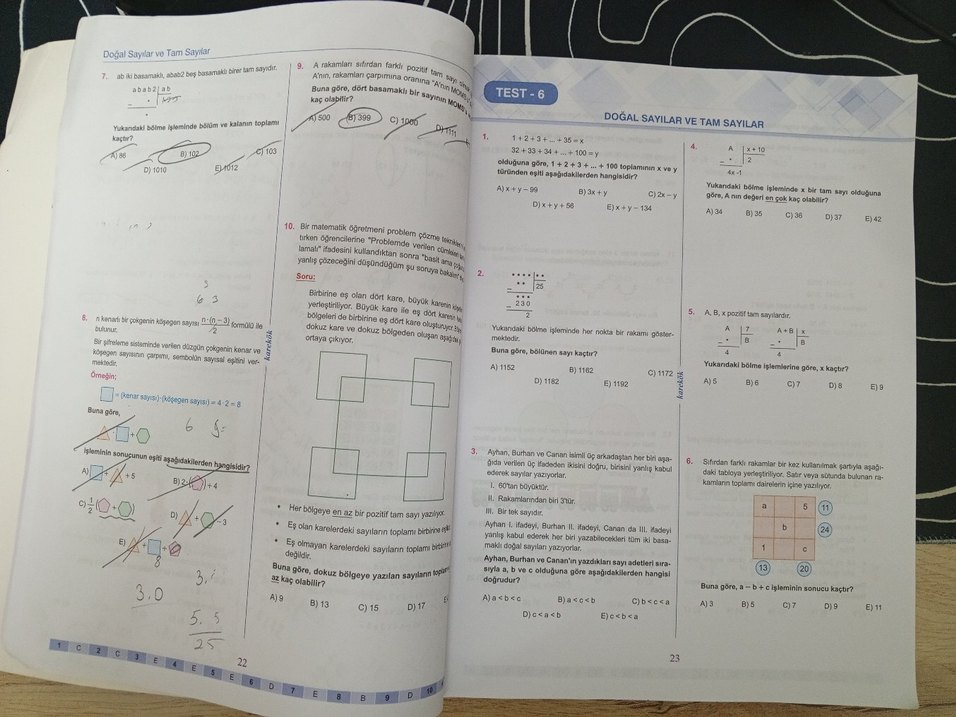 Doğal Sayılar ve Tam Sayılar
7. ab iki basamaklı, abab2 beş basamaklı birer tam sayıdır.
abab2 | ab
Yukarıdaki bölme işleminde bölüm ve kalanın toplamı
kaçtır?
A) 86 B) 102 C) 103
D) 1010 E) 1012
8. n kenarlı bir çokgenin köşegen sayısı n·(n−3)/2 formülü ile
bulunur.
Bir şifreleme sisteminde verilen düzgün çokgenin kenar ve
köşegen sayısının çarpımı, sembolün sayısal eşitini ver-
mektedir.
Örneğin;
= (kenar sayısı)·(köşegen sayısı) = 4·2 = 8
Buna göre,
işleminin sonucunun eşiti aşağıdakilerden hangisidir?
A) + + 5 B) 2· + 4
C) 1/2 ( + ) D) + − 3
E) + +
8
3.0
5.5
25
karekök
9. A rakamları sıfırdan farklı pozitif tam sayı
A'nın, rakamları çarpımına oranına "A'nın
Buna göre, dört basamaklı bir sayının
kaç olabilir?
A) 500 B) 399 C) 1000 D) 1111
10. Bir matematik öğretmeni problem çözme
tırken öğrencilerine "Problemde verilen
lamalı" ifadesini kullandıktan sonra "basit ama
yanlış çözeceğini düşündüğüm şu soruya bakalım"
Soru:
Birbirine eş olan dört kare, büyük karenin
yerleştiriliyor. Büyük kare ile eş dört karenin
bölgeleri de birbirine eş dört kare oluşturuyor.
dokuz kare ve dokuz bölgeden oluşan aşağıdaki
ortaya çıkıyor.
• Her bölgeye en az bir pozitif tam sayı yazılıyor.
• Eş olan karelerdeki sayıların toplamı birbirine
• Eş olmayan karelerdeki sayıların toplamı
değildir.
Buna göre, dokuz bölgeye yazılan sayıların
az kaç olabilir?
A) 9 B) 13 C) 15 D) 17
1 C 2 C 3 E 4 E 5 E 6 D 7 E 8 B 9 D 10
22
TEST - 6
DOĞAL SAYILAR VE TAM SAYILAR
1. 1 + 2 + 3 + ... + 35 = x
32 + 33 + 34 + ... + 100 = y
olduğuna göre, 1 + 2 + 3 + ... + 100 toplamının x ve y
türünden eşiti aşağıdakilerden hangisidir?
A) x + y − 99 B) 3x + y C) 2x − y
D) x + y + 56 E) x + y − 134
2. •••• | ••
•• 25
•••
230
2
Yukarıdaki bölme işleminde her nokta bir rakamı göster-
mektedir.
Buna göre, bölünen sayı kaçtır?
A) 1152 B) 1162 C) 1172
D) 1182 E) 1192
3. Ayhan, Burhan ve Canan isimli üç arkadaştan her biri aşa-
ğıda verilen üç ifadeden ikisini doğru, birisini yanlış kabul
ederek sayılar yazıyorlar.
I. 60'tan büyüktür.
II. Rakamlarından biri 3'tür.
III. Bir tek sayıdır.
Ayhan I. ifadeyi, Burhan II. ifadeyi, Canan da III. ifadeyi
yanlış kabul ederek her biri yazabilecekleri tüm iki basa-
maklı doğal sayıları yazıyorlar.
Ayhan, Burhan ve Canan'ın yazdıkları sayı adetleri sıra-
sıyla a, b ve c olduğuna göre aşağıdakilerden hangisi
doğrudur?
A) a < b < c B) a < c < b C) b < c < a
D) c < a < b E) c < b < a
karekök
4. A | x + 10
2
4x -1
Yukarıdaki bölme işleminde x bir tam sayı olduğuna
göre, A nın değeri en çok kaç olabilir?
A) 34 B) 35 C) 36 D) 37 E) 42
5. A, B, x pozitif tam sayılardır.
A | 7 A + B | x
B 8
4 4
Yukarıdaki bölme işlemlerine göre, x kaçtır?
A) 5 B) 6 C) 7 D) 8 E) 9
6. Sıfırdan farklı rakamlar bir kez kullanılmak şartıyla aşağı-
daki tabloya yerleştiriliyor. Satır veya sütunda bulunan ra-
kamların toplamı dairelerin içine yazılıyor.
a 5 11
b 24
1 c
13 20
Buna göre, a − b + c işleminin sonucu kaçtır?
A) 3 B) 5 C) 7 D) 9 E) 11
23